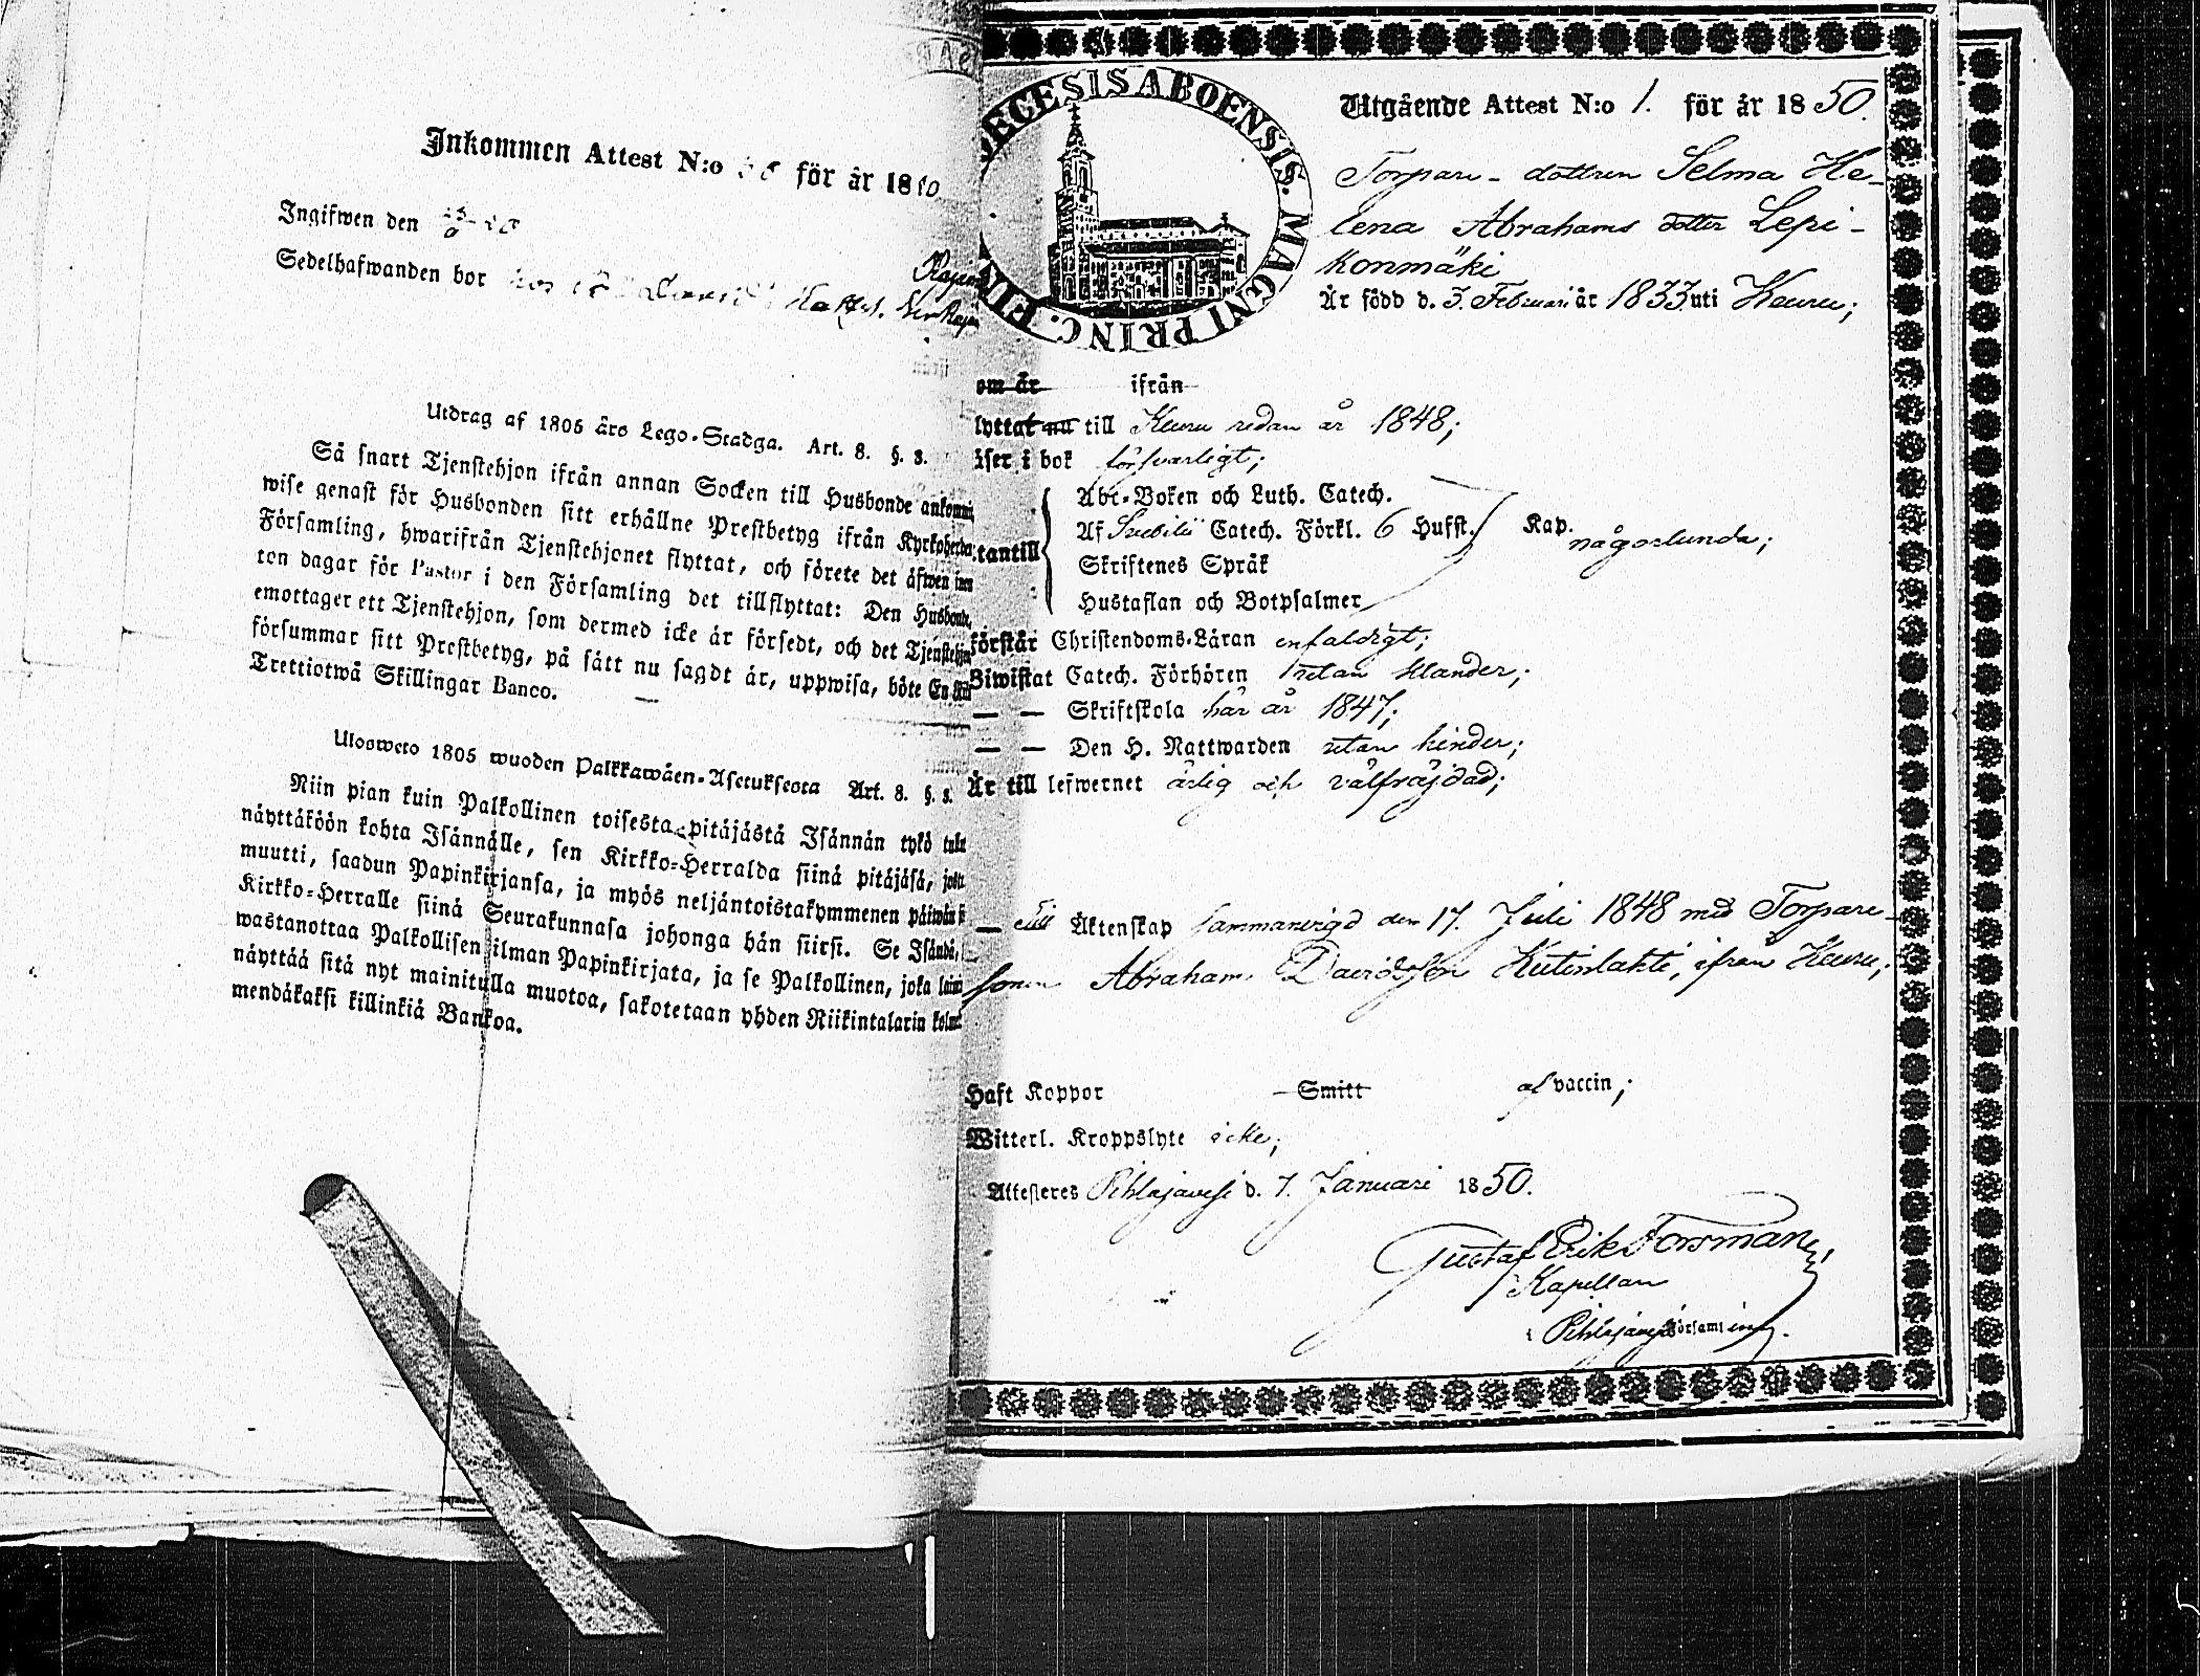 Inkommen Attest N:o för år 18
Ingifwen den
Sedelhafwanden bor
Utdrag af 1805 års Lego-Stadga. Art. 8. §. 8.
Så snart Tjenstehjon ifrån annan Socken till Husbonde
wise genast för Husbonden sitt erhållne Prestbetyg ifrån
Församling, hwarifrån Tjenstehjonet flyttat, och förete det äfwen
ton dagar för Pastor i den Församling det tillflyttat: Den
emottager ett Tjenstehjon, som dermed icke är försedt, och det
försummar sitt Prestbetyg, på sätt nu sagdt är, uppwisa, böte En
Trettiotwå Skillingar Banco.
Ulosweto 1805 wuoden Palkkawäen-Asetuksesta Art. 8. §. 8.
Niin pian kuin Palkollinen toisesta pitäjästä Isännän tykö
näyttäköön kohta Isännälle, sen Kirkko-Herralda siinä pitäjäsä,
muutti, saadun Papinkirjansa, ja myös neljäntoistakymmenen
Kirkko-Herralle siinä Seurakunnasa johonga hän siirsi. Se Isändä,
wastanottaa Palkollisen ilman Papinkirjata, ja se Palkollinen, joka
näyttää sitä nyt mainitulla muotoa, sakotetaan yhden Riikintalarin
mendäkaksi killinkiä Bankoa.
DECESIS ABOENSIS. MAGNI PRINC. FIN
Utgående Attest N:o 1. för år 1850.
Torpare-dottren Selma He-
lena Abrahams dotter Lepi-
konmäki
Är född d. 3. Februari år 1833 uti Keuru;
om år ifrån
lyttat nu till Keuru redan år 1848;
iser i bok försvarligt;
Abc-Boken och Luth. Catech.
Af Svebilii Catech. Förkl. 6 Hufst. Kap. någorlunda;
tantill
Skriftenes Språk
Hustaflan och Botpsalmer
förstår Christendoms-Läran enfaldigt;
Biwistat Catech. Förhören utan klander;
— — Skriftskola här år 1847;
— — Den H. Nattwarden utan hinder;
Är till lefwernet ärlig och välfräjdad;
— Till Äktenskap sammanvigd den 17. Juli 1848 med Torpare-
sonen Abraham Davidsson Kiitinlahti, ifrån Keuru;
Haft Koppor Smitt af vaccin;
Witterl. Kroppslyte icke;
Attesteres Pihlajavesi d. 7. Januari 1850.
Gustaf Erik Forsman,
Kapellan
i Pihlajavesi Församling.